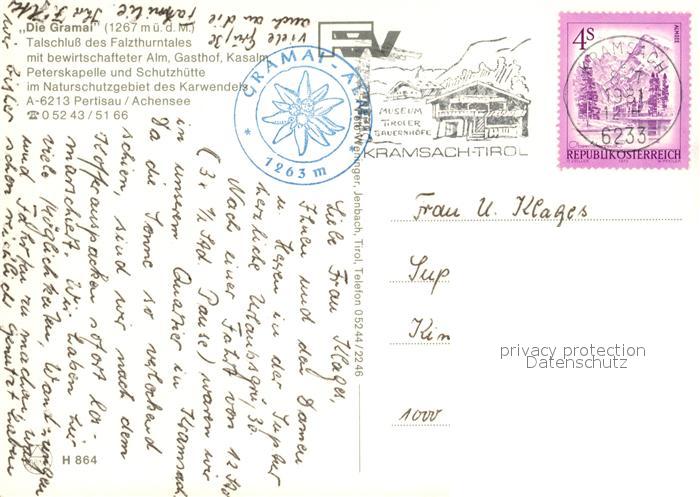 „Die Gramai" (1267 m ü. d. M.)
Talschluß des Falzthurntales
mit bewirtschafteter Alm, Gasthof, Kasalm,
Peterskapelle und Schutzhütte
im Naturschutzgebiet des Karwendels
A-6213 Pertisau / Achensee
☎ 0 52 43 / 51 66
GRAMAI-ALM
* 1263 m *
MUSEUM
TIROLER
BAUERNHÖFE
KRAMSACH-TIROL
4S
ALMSEE
KRAMSACH
1981
6233
REPUBLIK ÖSTERREICH
Jenbach, Tirol, Telefon 05244/2246
Frau U. Klages
Sup
Kin
1000
privacy protection
Datenschutz
Liebe Frau Klages,
Ihnen und den Damen
u. Herren in der Suptur
herzliche Urlaubsgrüße.
Nach einer Fahrt von 12 Std
(3 x ½ Std. Pause) waren wir
in unserem Quartier in Kramsach.
Da die Sonne so verlockend
schien, sind wir nach dem
Kofferauspacken sofort los-
marschiert. Wir haben hier
viele Möglichkeiten, Wanderungen
und Fahrten zu machen, was
wir bisher schon reichlich genutzt haben
Viele Grüße
auch an die
Familie
H 864